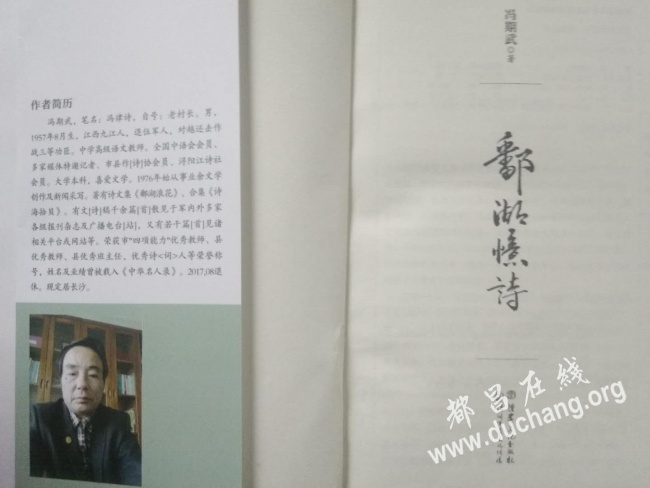 作者简历
冯期武，笔名：冯律诗，自号：老村长。男，
1957年8月生，江西九江人，退伍军人，对越还击作
战三等功臣。中学高级语文教师。全国中语会会员。
多家媒体特邀记者。市县作[诗]协会员。浔阳江诗社
会员。大学本科，喜爱文学。1976年始从事业余文学
创作及新闻采写。著有诗文集《鄱湖浪花》、合集《诗
海拾贝》。有文[诗]稿千余篇[首]散见于军内外多家
各级报刊杂志及广播电台[站]，又有若干篇[首]见诸
相关平台或网站等。荣获市"四项能力"优秀教师、县
优秀教师、县优秀班主任、优秀诗<词>人等荣誉称
号，姓名及业绩曾被载入《中华名人录》。2017.08退
休。现定居长沙。
冯期武 著
鄱湖憶詩
都昌在线
www.duchang.org